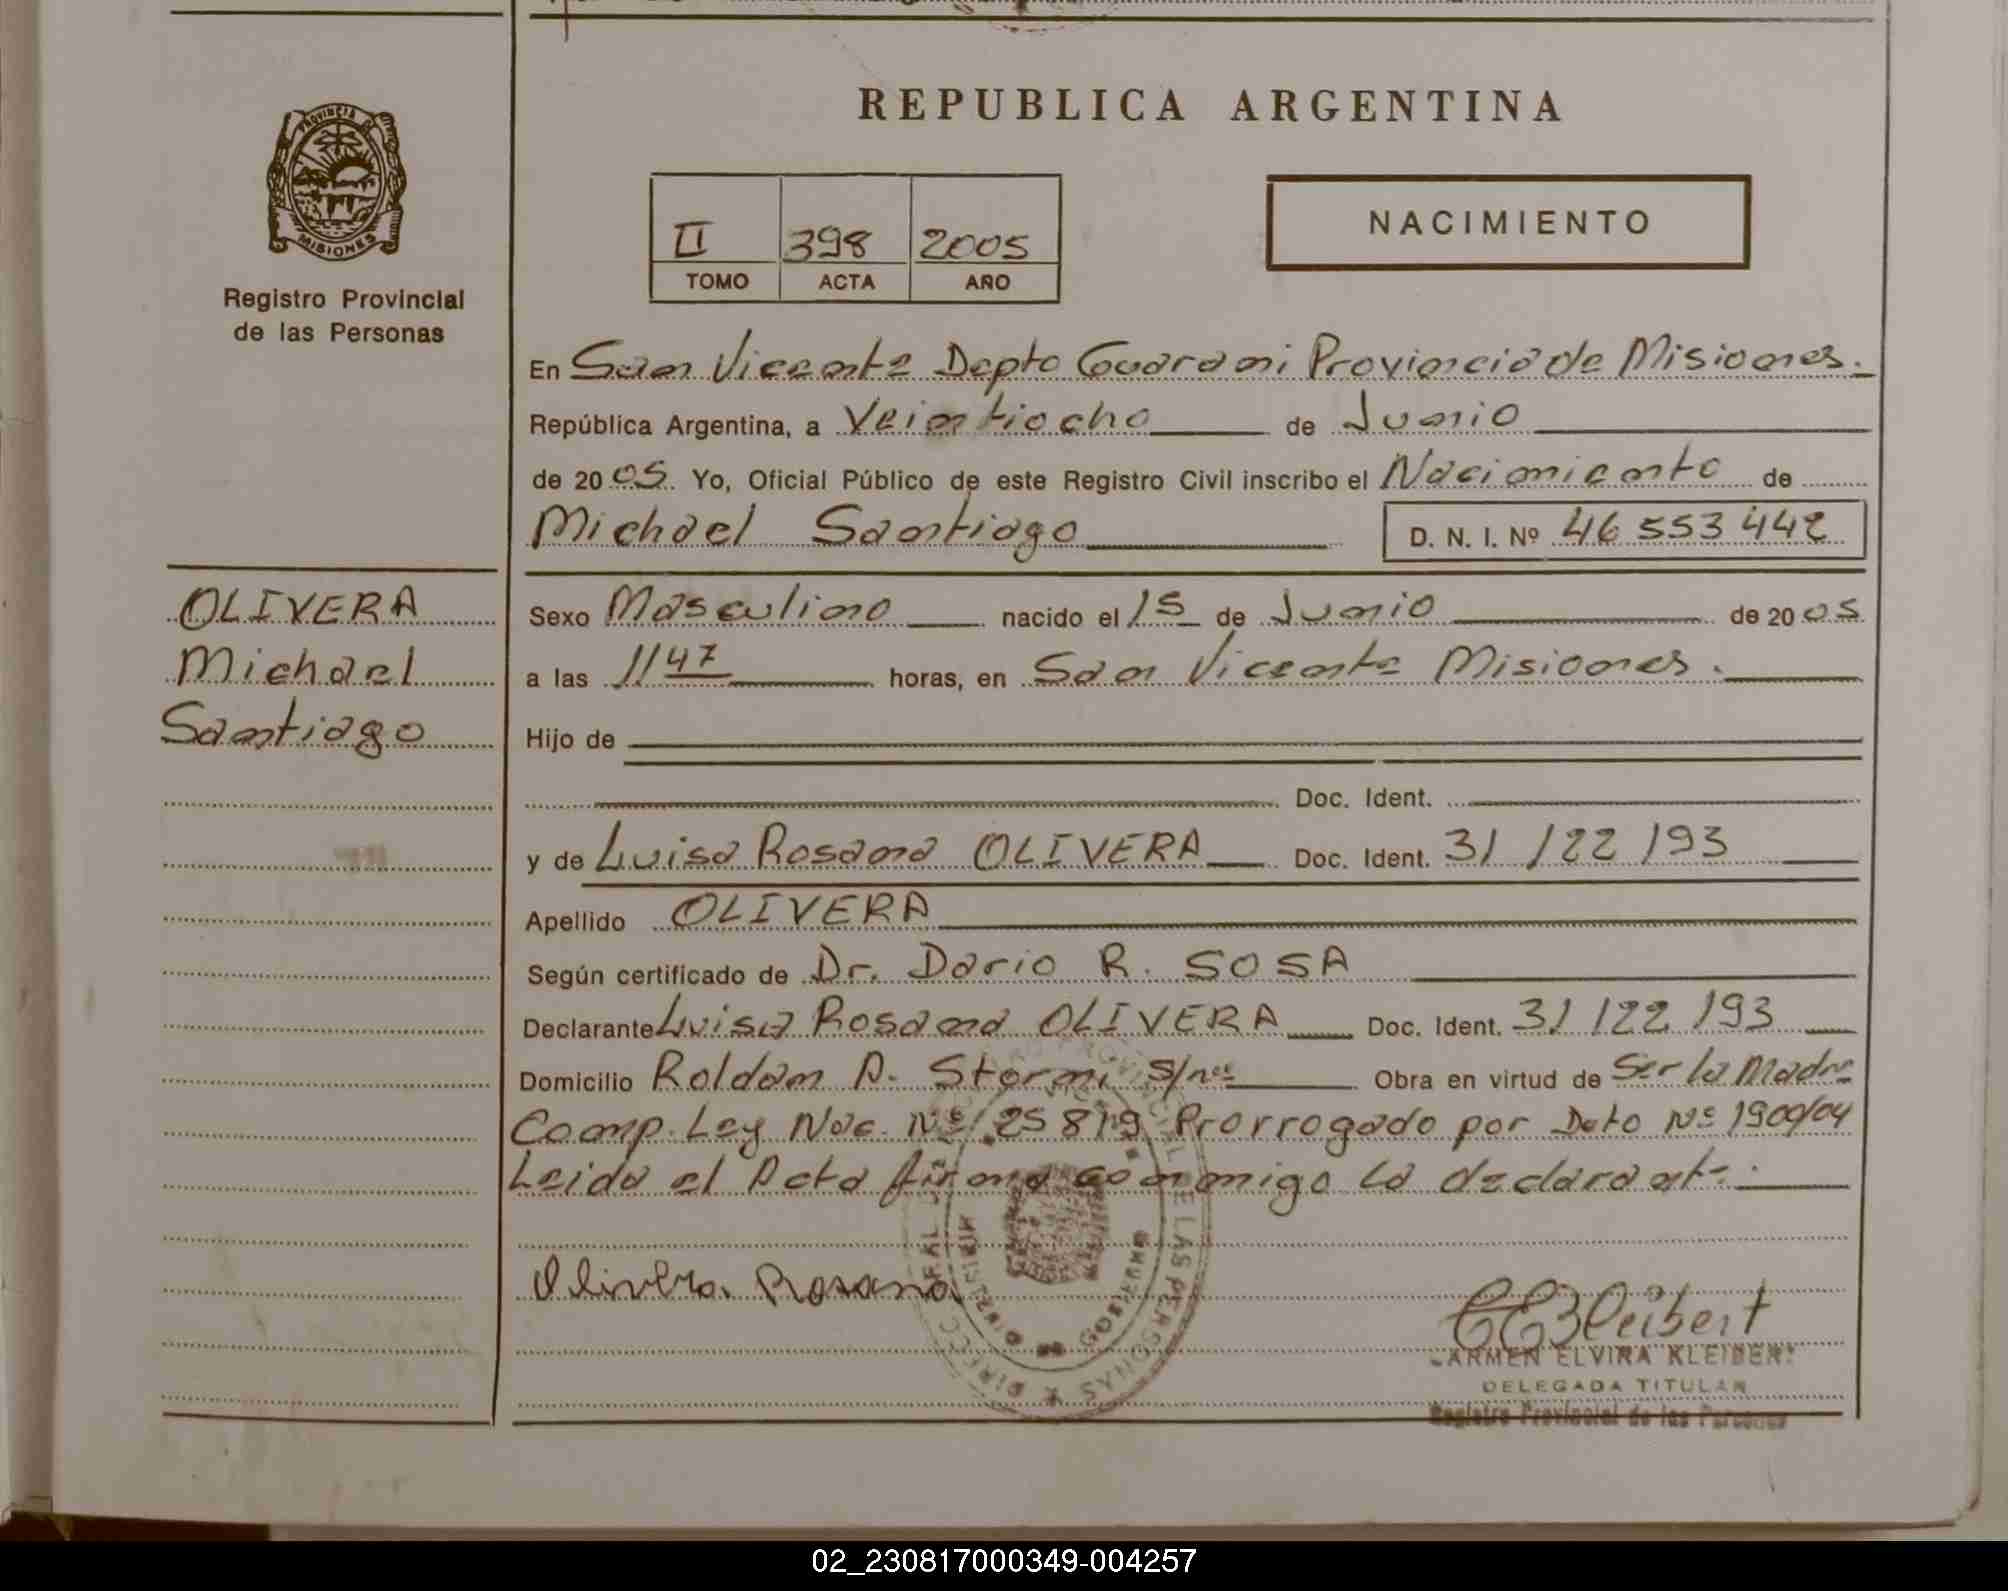 REPUBLICA ARGENTINA
PROVINCIA DE
MISIONES
Registro Provincial
de las Personas
II 398 2005
TOMO ACTA AÑO
NACIMIENTO
En San Vicente Depto Guarani Provincia de Misiones.
República Argentina, a Veintiocho de Junio
de 2005. Yo, Oficial Público de este Registro Civil inscribo el Nacimiento de
Michael Santiago D. N. I. Nº 46 553 442
OLIVERA
Michael
Santiago
Sexo Masculino nacido el 15 de Junio de 2005
a las 11 47 horas, en San Vicente Misiones.
Hijo de
Doc. Ident.
y de Luisa Rosana OLIVERA Doc. Ident. 31 122 193
Apellido OLIVERA
Según certificado de Dr. Dario R. SOSA
Declarante Luisa Rosana OLIVERA Doc. Ident. 31 122 193
Domicilio Roldan A. Storni s/nº Obra en virtud de Ser la Madre
Comp. Ley Nac. Nº 25819 Prorrogado por Dcto Nº 1900/04
Leida el Acta firma conmigo la declarante.
Olivera Rosana
CEKleibert
CARMEN ELVIRA KLEIBERT
DELEGADA TITULAR
Registro Provincial de las Personas
02_230817000349-004257